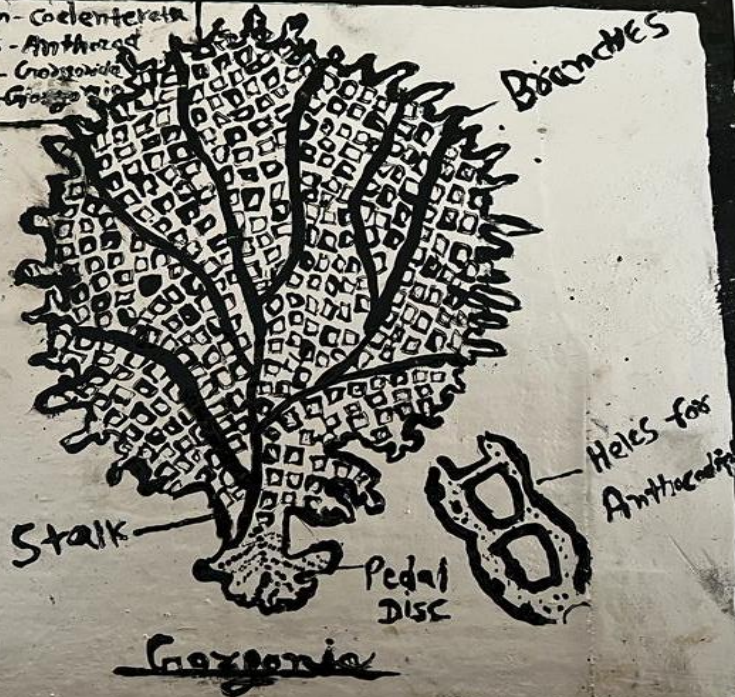 n- Coelenterata
s - Anthozoa
- Gorgonida
- Gorgonia
Branches
Holes for
Anthocodia
Stalk
Pedal
Disc
Gorgonia